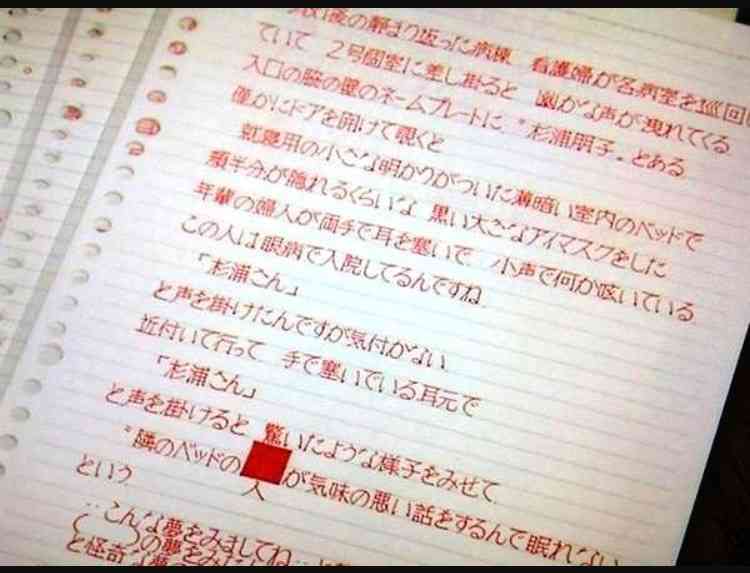 後の静まり返った病棟 看護婦が各病室を巡回
ていて 2号個室に差し掛ると 幽かな声が洩れてくる
入口の脇の壁のネームプレートに〝杉浦朋子〟とある
僅かにドアを開けて覗くと
就寝用の小さな明かりがついた薄暗い室内のベッドで
顔半分が隠れるくらいな 黒い大きなアイマスクをした
年輩の婦人が両手で耳を塞いで 小声で何か呟いている
この人は眼病で入院してるんですね
「杉浦さん」
と声を掛けたんですが気付かない
近付いて行って 手で塞いでいる耳元で
「杉浦さん」
と声を掛けると 驚いたような様子をみせて
〝隣のベッドの人が気味の悪い話をするんで眠れない
という
こんな夢をみましてね
の夢をみた
と怪奇な夢